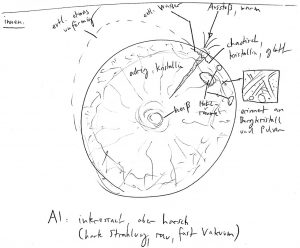 innen.
evtl. etwas
unförmig
evtl. Wasser
Ausstoß, warm
chaotisch,
kristallin, glatt
adrig, kristallin
heiß
Hohl-
räume
erinnert an
Bergkristall
und Pulver
A1: interessant, aber harsch
(hark Strahlung, rau, fast Vakuum)